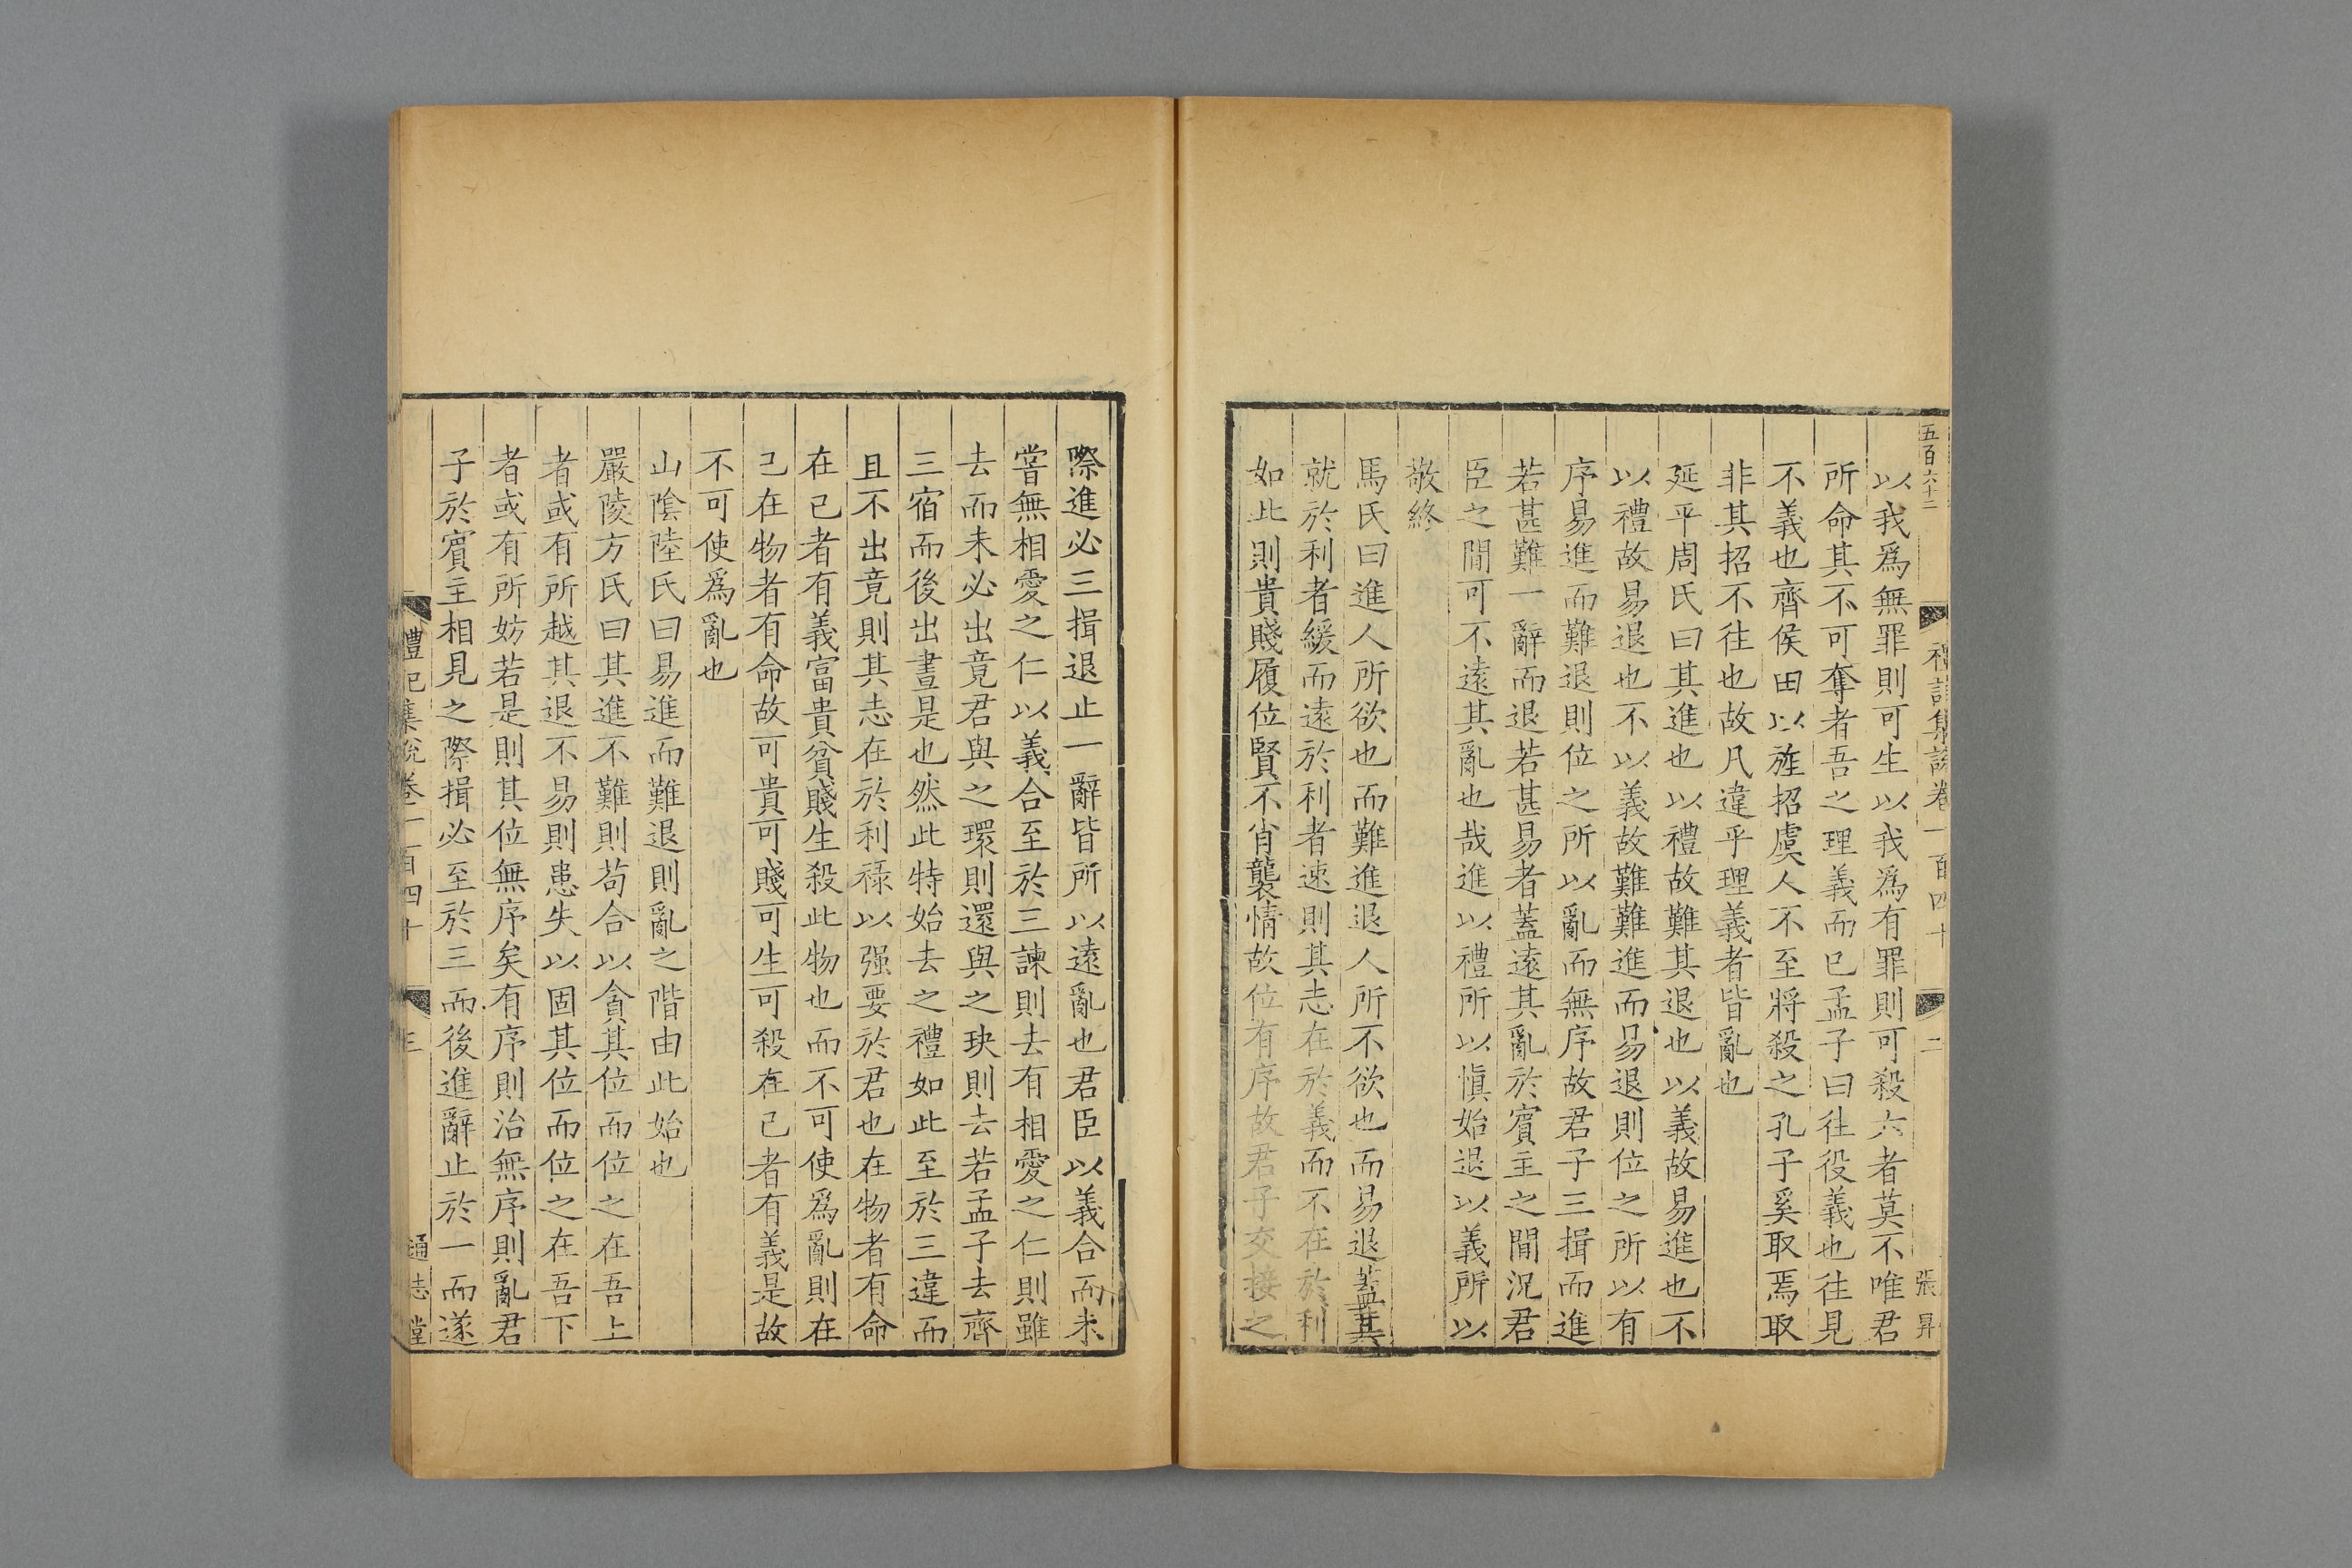 五百六十二
禮記集說卷一百四十
二
張昇
以我爲無罪則可生以我爲有罪則可殺六者莫不唯君
所命其不可奪者吾之理義而已孟子曰往役義也往見
不義也齊侯田以旌招虞人不至將殺之孔子奚取焉取
非其招不往也故凡違乎理義者皆亂也
延平周氏曰其進也以禮故難其退也以義故易進也不
以禮故易退也不以義故難難進而易退則位之所以有
序易進而難退則位之所以亂而無序故君子三揖而進
若甚難一辭而退若甚易者蓋遠其亂於賓主之間況君
臣之間可不遠其亂也哉進以禮所以愼始退以義所以
敬終
馬氏曰進人所欲也而難進退人所不欲也而易退蓋其
就於利者緩而遠於利者速則其志在於義而不在於利
如此則貴賤履位賢不肖襲情故位有序故君子交接之
際進必三揖退止一辭皆所以遠亂也君臣以義合而未
嘗無相愛之仁以義合至於三諫則去有相愛之仁則雖
去而未必出竟君與之環則還與之玦則去若孟子去齊
三宿而後出晝是也然此特始去之禮如此至於三違而
且不出竟則其志在於利祿以强要於君也在物者有命
在己者有義富貴貧賤生殺此物也而不可使爲亂則在
己在物者有命故可貴可賤可生可殺在己者有義是故
不可使爲亂也
山陰陸氏曰易進而難退則亂之階由此始也
嚴陵方氏曰其進不難則苟合以貪其位而位之在吾上
者或有所越其退不易則患失以固其位而位之在吾下
者或有所妨若是則其位無序矣有序則治無序則亂君
子於賓主相見之際揖必至於三而後進辭止於一而遂
禮記集說卷一百四十
三
通志堂